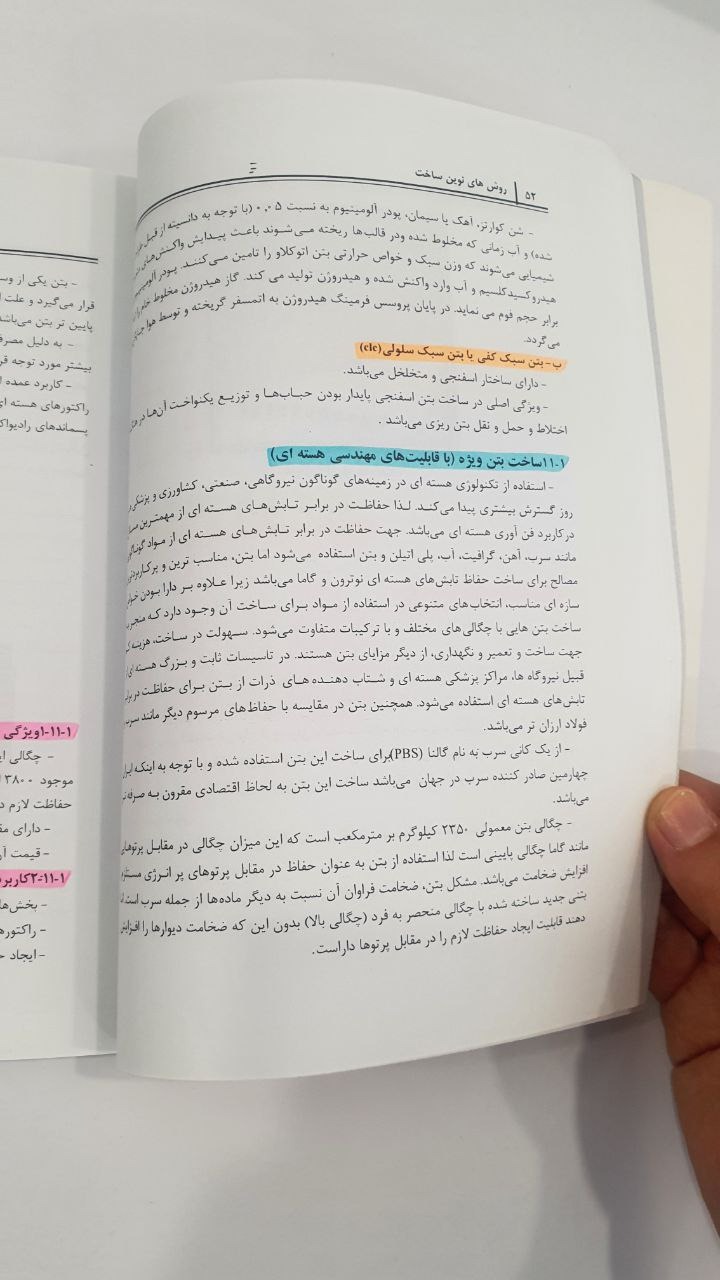 ۵۲ روش های نوین ساخت
- شن کوارتز، آهک یا سیمان، پودر آلومینیوم به نسبت ۰,۰۵ (با توجه به دانسیته از قبیل
شده) و آب زمانی که مخلوط شده ودر قالب‌ها ریخته می‌شوند باعث پیدایش واکنش‌های
شیمیایی می‌شوند که وزن سبک و خواص حرارتی بتن اتوکلاو را تامین می‌کنند. پودر
هیدروکسیدکلسیم و آب وارد واکنش شده و هیدروژن تولید می کند. گاز هیدروژن مخلوط خام را
برابر حجم فوم می نماید. در پایان پروسس فرمینگ هیدروژن به اتمسفر گریخته و توسط هوا
می‌گردد.
ب- بتن سبک کفی یا بتن سبک سلولی(clc)
- دارای ساختار اسفنجی و متخلخل می‌باشد.
- ویژگی اصلی در ساخت بتن اسفنجی پایدار بودن حباب‌ها و توزیع یکنواخت آن‌ها در
اختلاط و حمل و نقل بتن ریزی می‌باشد .
۱۱-۱ساخت بتن ویژه (با قابلیت‌های مهندسی هسته ای)
- استفاده از تکنولوژی هسته ای در زمینه‌های گوناگون نیروگاهی، صنعتی، کشاورزی و پزشکی
روز گسترش بیشتری پیدا می‌کند. لذا حفاظت در برابر تابش‌های هسته ای از مهمترین
در‌کاربرد فن آوری هسته ای می‌باشد. جهت حفاظت در برابر تابش‌های هسته ای از مواد
مانند سرب، آهن، گرافیت، آب، پلی اتیلن و بتن استفاده می‌شود اما بتن، مناسب ترین و
مصالح برای ساخت حفاظ تابش‌های هسته ای نوترون و گاما می‌باشد زیرا علاوه بر دارا بودن
سازه ای مناسب، انتخاب‌های متنوعی در استفاده از مواد برای ساخت آن وجود دارد که
ساخت بتن هایی با چگالی‌های مختلف و با ترکیبات متفاوت می‌شود. سهولت در ساخت، هزینه
جهت ساخت و تعمیر و نگهداری، از دیگر مزایای بتن هستند. در تاسیسات ثابت و بزرگ هسته ای
قبیل نیروگاه ها، مراکز پزشکی هسته ای و شتاب دهنده های ذرات از بتن برای حفاظت در
تابش‌های هسته ای استفاده می‌شود. همچنین بتن در مقایسه با حفاظ‌های مرسوم دیگر مانند سرب
فولاد ارزان تر می‌باشد.
- از یک کانی سرب به نام گالنا (PBS)برای ساخت این بتن استفاده شده و با توجه به اینکه
چهارمین صادر کننده سرب در جهان می‌باشد ساخت این بتن به لحاظ اقتصادی مقرون به صرفه
می‌باشد.
- چگالی بتن معمولی ۲۳۵۰ کیلوگرم بر مترمکعب است که این میزان چگالی در مقابل
مانند گاما چگالی پایینی است لذا استفاده از بتن به عنوان حفاظ در مقابل پرتوهای پر انرژی
افزایش ضخامت می‌باشد. مشکل بتن، ضخامت فراوان آن نسبت به دیگر ماده‌ها از جمله سرب است
بتنی جدید ساخته شده با چگالی منحصر به فرد (چگالی بالا) بدون این که ضخامت دیوارها را
دهند قابلیت ایجاد حفاظت لازم را در مقابل پرتوها داراست.
- بتن یکی از
قرار می‌گیرد و علت
پایین تر بتن می‌باشد
- به دلیل مصرف
بیشتر مورد توجه
- کاربرد عمده
راکتورهای هسته ای
پسماندهای
۱-۱۱-۱ویژگی
- چگالی
موجود ۳۸۰۰
حفاظت لازم
- دارای
- قیمت
۱-۱۱-۲
- بخش‌ها
-
- ایجاد